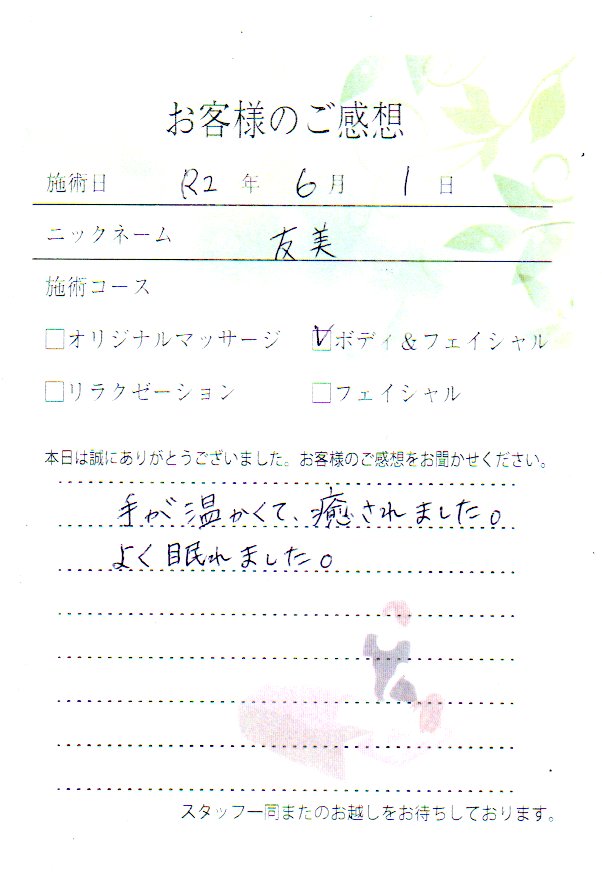 お客様のご感想
施術日 R2 年 6 月 1 日
ニックネーム 友美
施術コース
□オリジナルマッサージ ☑ボディ＆フェイシャル
□リラクゼーション □フェイシャル
本日は誠にありがとうございました。お客様のご感想をお聞かせください。
手が温かくて、癒されました。
よく眠れました。
スタッフ一同またのお越しをお待ちしております。